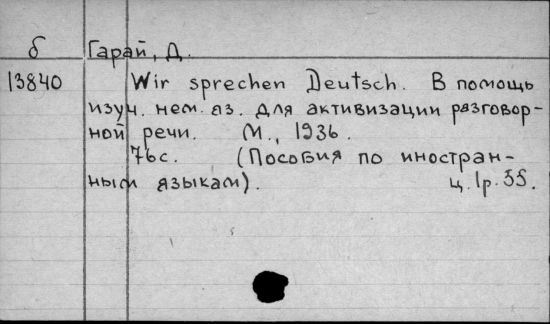 б Гарай, Д.
13840 Wir sprechen Deutsch. В помощь
изуч. нем. яз. для активизации разговор-
ной речи. М., 1936.
76с. (Пособия по иностран-
ным языкам). ц. 1р. 55.